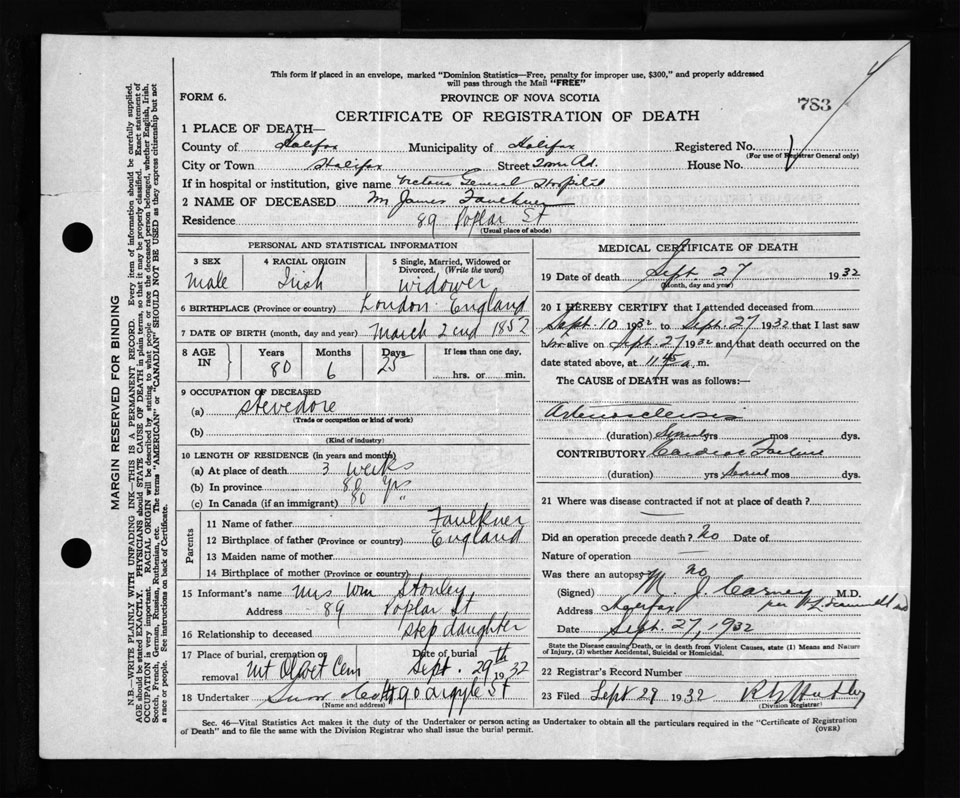 This form if placed in an envelope, marked "Dominion Statistics—Free, penalty for improper use, $300," and properly addressed
will pass through the Mail "FREE"
FORM 6.
PROVINCE OF NOVA SCOTIA
783
CERTIFICATE OF REGISTRATION OF DEATH
1 PLACE OF DEATH—
County of Halifax Municipality of Halifax Registered No.
(For use of Registrar General only)
City or Town Halifax Street Tower Rd. House No.
If in hospital or institution, give name Victoria General Hospital
2 NAME OF DECEASED Mr James Faulkner
Residence 89 Poplar St
(Usual place of abode)
MARGIN RESERVED FOR BINDING
N.B.—WRITE PLAINLY WITH UNFADING INK—THIS IS A PERMANENT RECORD. Every item of information should be carefully supplied.
AGE should be stated EXACTLY. PHYSICIANS should STATE CAUSE OF DEATH in plain terms, so that it may be properly classified. Exact statement of
OCCUPATION is very important. RACIAL ORIGIN will be described by stating to what people or race the deceased person belonged, whether English, Irish,
Scotch, French, German, Russian, Ruthenian, etc. The terms "AMERICAN" or "CANADIAN" SHOULD NOT BE USED as they express citizenship but not
a race or people. See instructions on back of Certificate.
PERSONAL AND STATISTICAL INFORMATION
3 SEX 4 RACIAL ORIGIN 5 Single, Married, Widowed or
Divorced. (Write the word)
Male Irish Widower
6 BIRTHPLACE (Province or country) London England
7 DATE OF BIRTH (month, day and year) March 2nd 1852
8 AGE IN Years Months Days If less than one day,
80 6 25 hrs. or min.
9 OCCUPATION OF DECEASED
(a) Stevedore
(Trade or occupation or kind of work)
(b)
(Kind of industry)
10 LENGTH OF RESIDENCE (in years and months)
(a) At place of death 3 weeks
(b) In province 80 yrs
(c) In Canada (if an immigrant) 80 "
Parents
11 Name of father Faulkner
12 Birthplace of father (Province or country) England
13 Maiden name of mother
14 Birthplace of mother (Province or country)
15 Informant's name Mrs Wm Stanley
Address 89 Poplar St
16 Relationship to deceased Step daughter
17 Place of burial, cremation or removal Mt Olivet Cem Date of burial Sept. 29th 1932
18 Undertaker Snow & Co 90 Argyle St
(Name and address)
MEDICAL CERTIFICATE OF DEATH
19 Date of death Sept. 27 1932
(Month, day and year)
20 I HEREBY CERTIFY that I attended deceased from
Sept. 10 1932 to Sept. 27 1932 that I last saw
him alive on Sept. 27 1932 and that death occurred on the
date stated above, at 11.45 a. m.
The CAUSE of DEATH was as follows:—
Arteriosclerosis
(duration) Several yrs mos dys.
CONTRIBUTORY Cardiac Failure
(duration) yrs Several mos dys.
21 Where was disease contracted if not at place of death?
Did an operation precede death? No Date of
Nature of operation —
Was there an autopsy No
(Signed) M. J. Carney M.D.
Address Halifax per
Date Sept. 27, 1932
State the Disease causing Death, or in death from Violent Causes, state (1) Means and Nature
of Injury, (2) whether Accidental, Suicidal or Homicidal.
22 Registrar's Record Number
23 Filed Sept 29 1932
(Division Registrar)
Sec. 46—Vital Statistics Act makes it the duty of the Undertaker or person acting as Undertaker to obtain all the particulars required in the "Certificate of Registration
of Death" and to file the same with the Division Registrar who shall issue the burial permit.
(OVER)